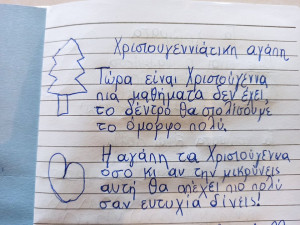 Χριστουγεννιάτικη αγάπη
Τώρα είναι Χριστούγεννα
πια μαθήματα δεν έχει
το δέντρο θα στολίσουμε
το όμορφο πολύ.
Η αγάπη τα Χριστούγεννα
όσο κι αν την μικρύνεις
αυτή θα απέχει πιο πολύ
σαν ευτυχία δίνεις!